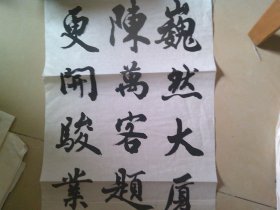 巍然大厦
陳萬客題
更開駿業